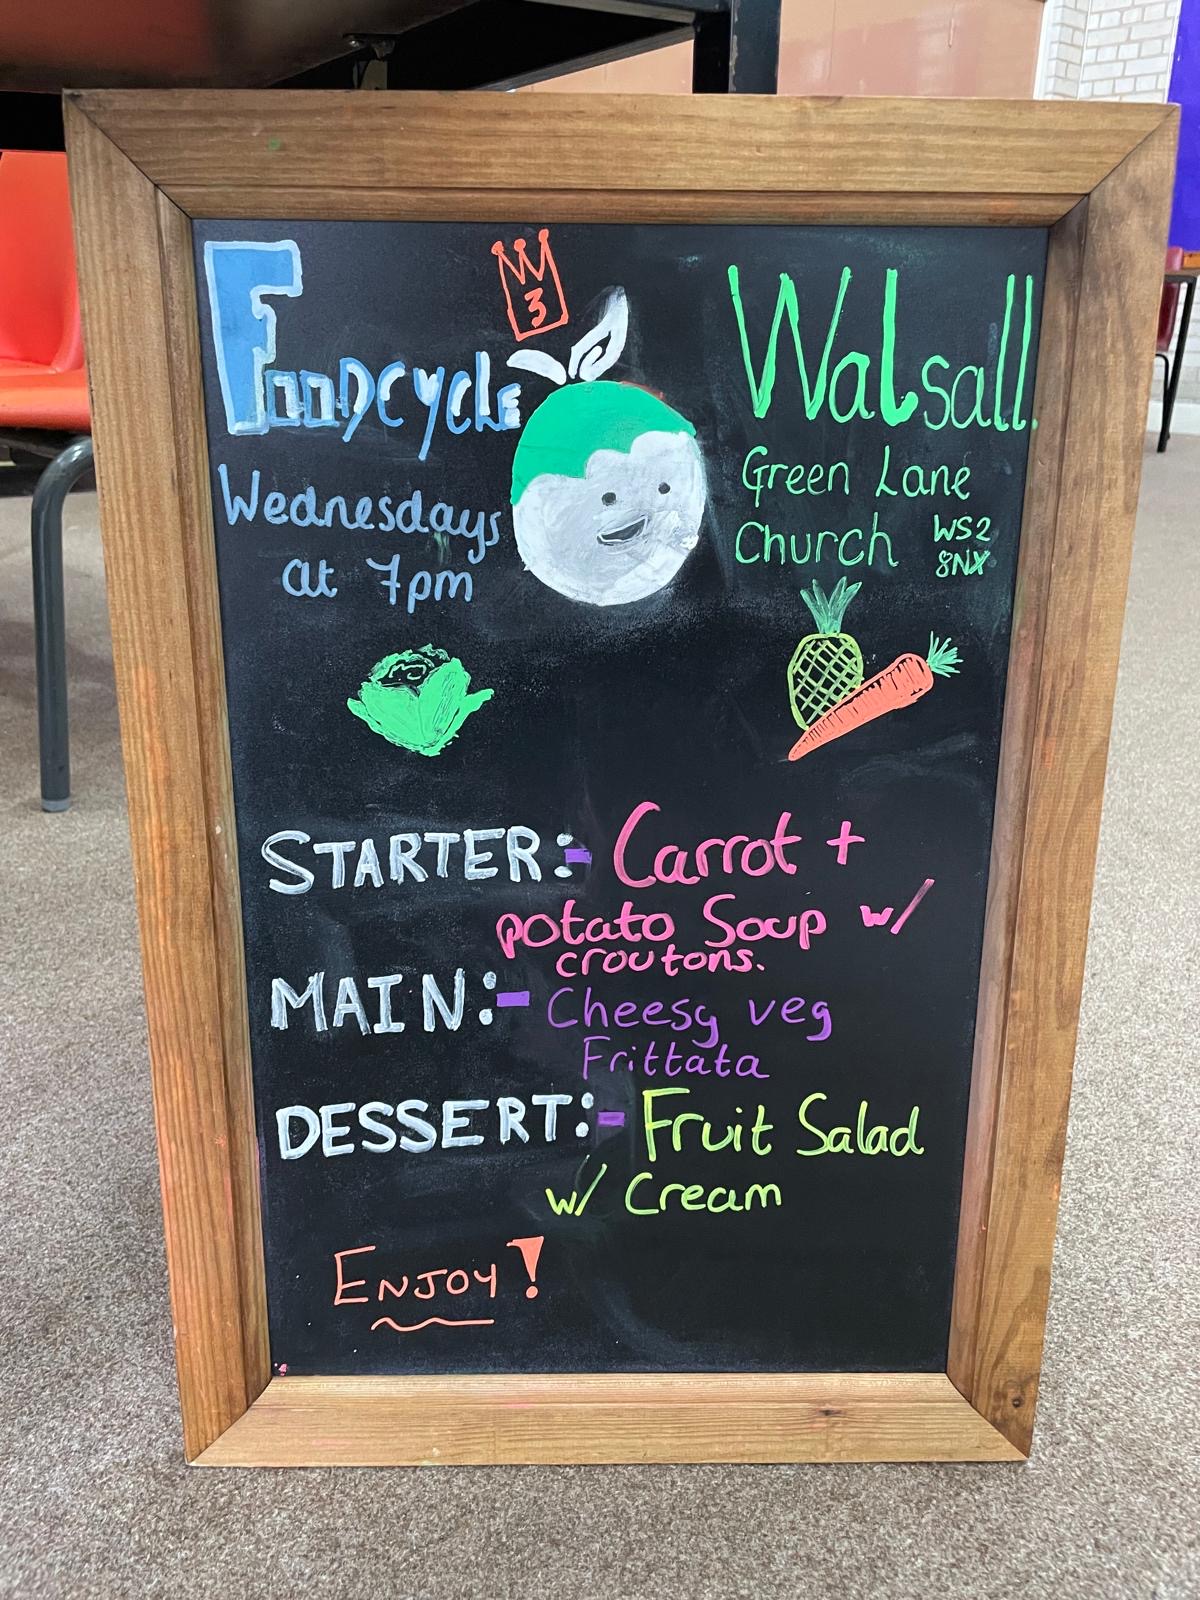 3
Foodcycle
Wednesdays
at 7pm
Walsall
Green Lane
Church WS2
8NX
STARTER:- Carrot +
potato Soup w/
croutons.
MAIN:- Cheesy veg
Frittata
DESSERT:- Fruit Salad
w/ Cream
ENJOY!